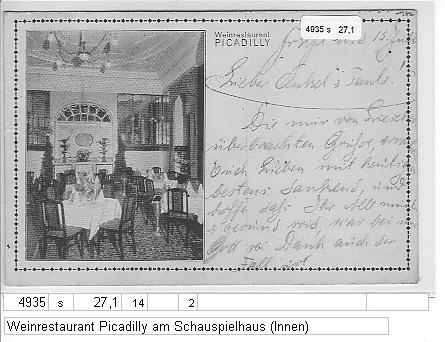 4935 s 27,1
Weinrestaurant
PICADILLY
15. Juli
Lieber Onkel & Tante!
Die mir von
überbrachten Grüße,
Euch Lieben mit
bestens dankend, und
hoffe daß Ihr Alle
gesund seid, was bei mir
Gott sei Dank auch der
Fall ist.
4935 s 27,1 14 2
Weinrestaurant Picadilly am Schauspielhaus (Innen)